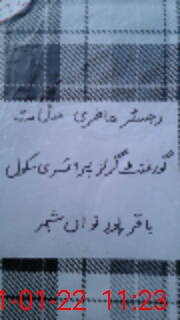 رجسٹر حاضری مدرسات
گورنمنٹ گرلز پرائمری سکول
باقر پور نواں شہر
1-01-22 11:23